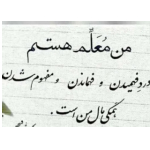 من مُعَلِّمـ هستم
درد فهمیدن و فهماندن و مفهوم شدن
همگی مال من است.